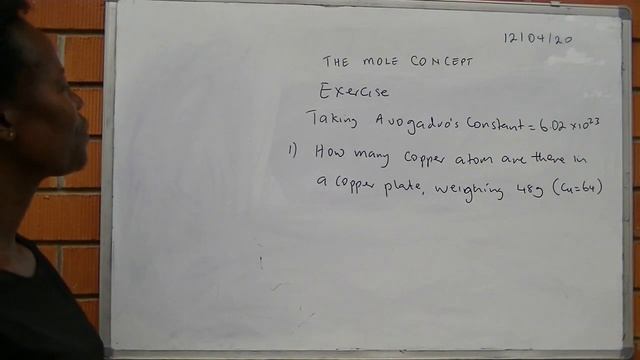 12/04/20
THE MOLE CONCEPT
Exercise
Taking Avogadro's Constant = 6.02 x10²³
1) How many copper atom are there in
a copper plate, weighing 48g (Cu=64)